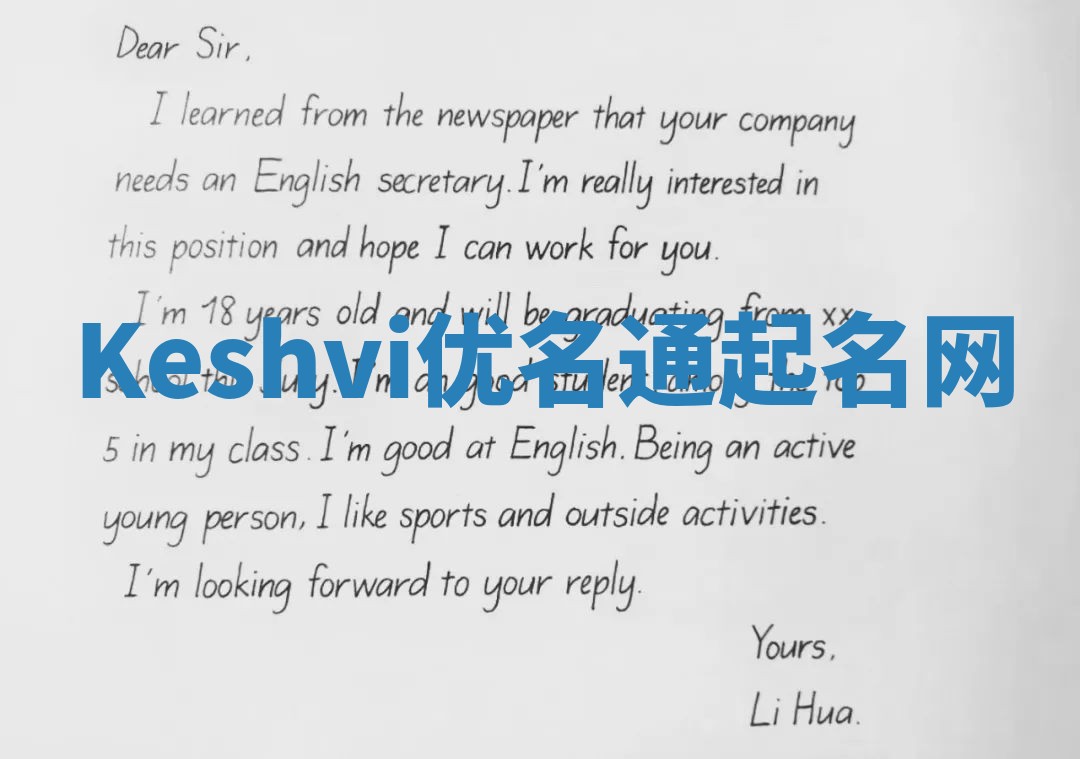 Dear Sir,
I learned from the newspaper that your company
needs an English secretary. I'm really interested in
this position and hope I can work for you.
I'm 18 years old and will be graduating from xx
Keshvi优名通起名网
school this July. I'm an good student top
5 in my class. I'm good at English. Being an active
young person, I like sports and outside activities.
I'm looking forward to your reply.
Yours,
Li Hua.